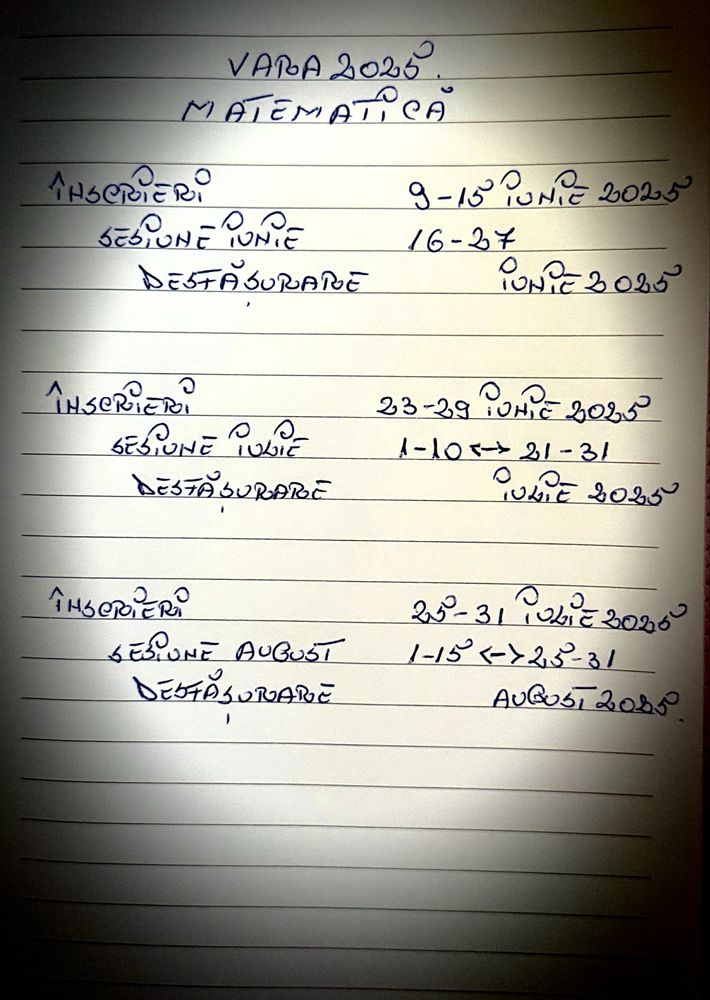 VARA 2025.
MATEMATICĂ
ÎNSCRIERI 9-15 IUNIE 2025
SESIUNE IUNIE 16-27
DESFĂȘURARE IUNIE 2025
ÎNSCRIERI 23-29 IUNIE 2025
SESIUNE IULIE 1-10 <-> 21-31
DESFĂȘURARE IULIE 2025
ÎNSCRIERI 25-31 IULIE 2025
SESIUNE AUGUST 1-15 <-> 25-31
DESFĂȘURARE AUGUST 2025.